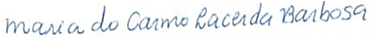 Maria do Carmo Lacerda Barbosa